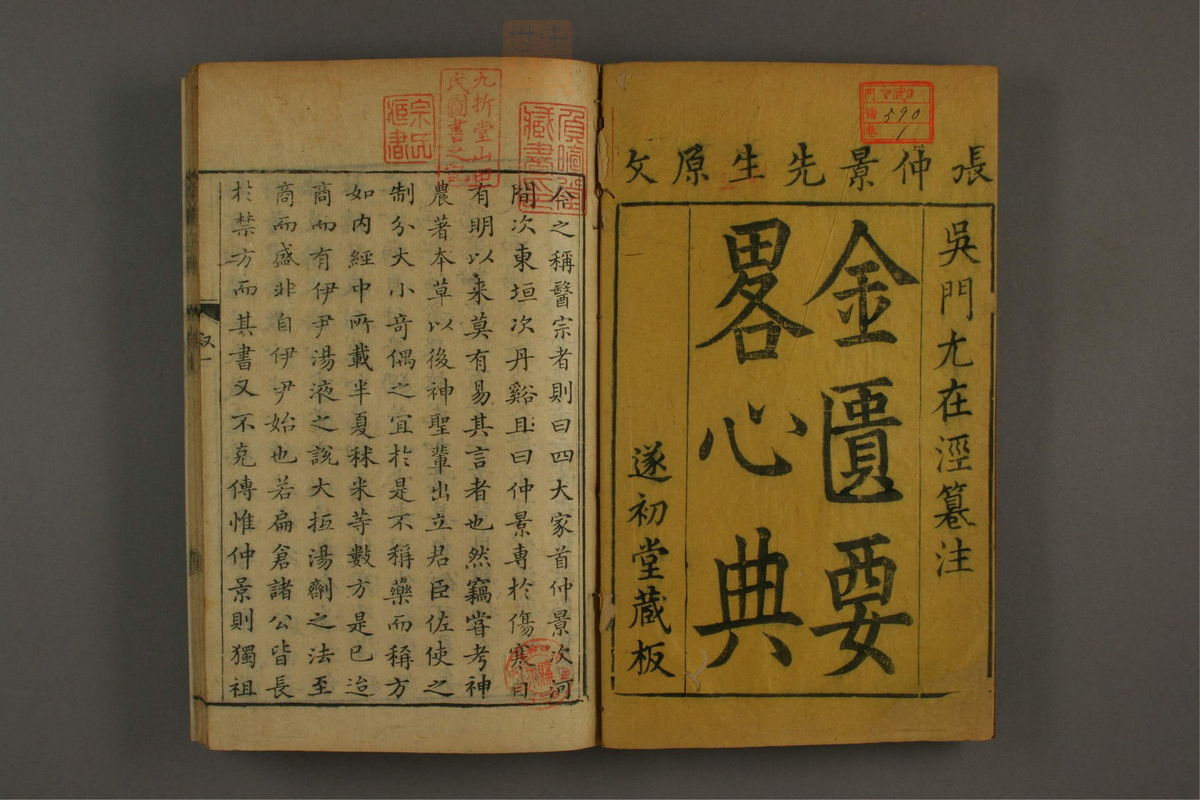 張仲景先生原文
吳門尤在涇纂注
金匱要
畧心典
遂初堂藏板
590
1
今之稱醫宗者則曰四大家首仲景次河
間次東垣次丹谿且曰仲景專於傷寒自
有明以来莫有易其言者也然竊嘗考神
農著本草以後神聖輩出立君臣佐使之
制分大小竒偶之宜於是不稱藥而稱方
如内經中所載半夏秫米等數方是已迨
商而有伊尹湯液之說大抵湯劑之法至
商而盛非自伊尹始也若扁倉諸公皆長
於禁方而其書又不克傳惟仲景則獨祖
叙
一
九折堂山田
氏圖書之記
宗氏
藏書